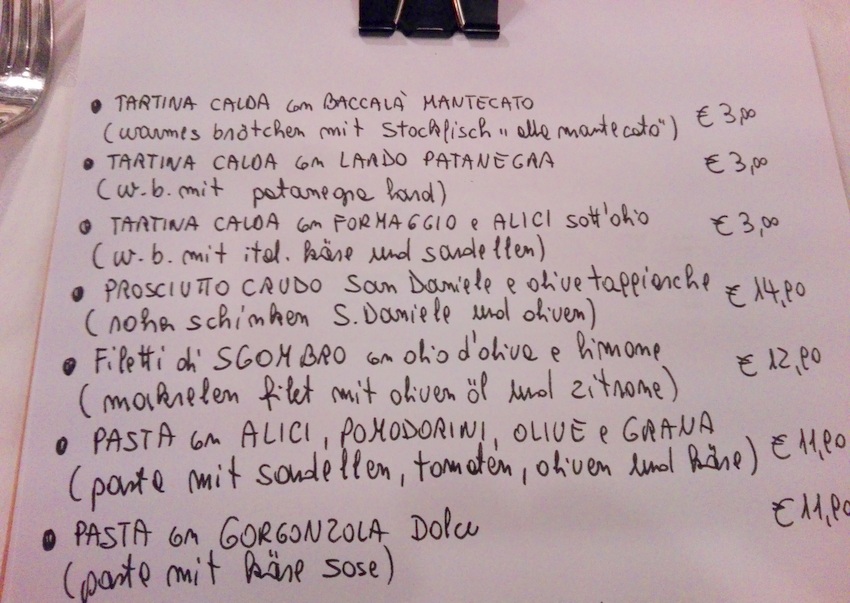 • TARTINA CALDA con BACCALÀ MANTECATO
(warmes brötchen mit Stockfisch „alla mantecato") € 3,00
• TARTINA CALDA con LARDO PATANEGRA € 3,00
(w.b. mit patanegra lard)
• TARTINA CALDA con FORMAGGIO e ALICI sott'olio € 3,00
(w.b. mit ital. käse und sardellen)
• PROSCIUTTO CRUDO San Daniele e olive taggiasche € 14,00
(roher schinken S. Daniele und oliven)
• Filetti di SGOMBRO con olio d'oliva e limone € 12,00
(makrelen filet mit oliven öl und zitrone)
• PASTA con ALICI, POMODORINI, OLIVE e GRANA
(pasta mit sardellen, tomaten, oliven und käse) € 11,00
• PASTA con GORGONZOLA Dolce € 11,00
(pasta mit käse sose)